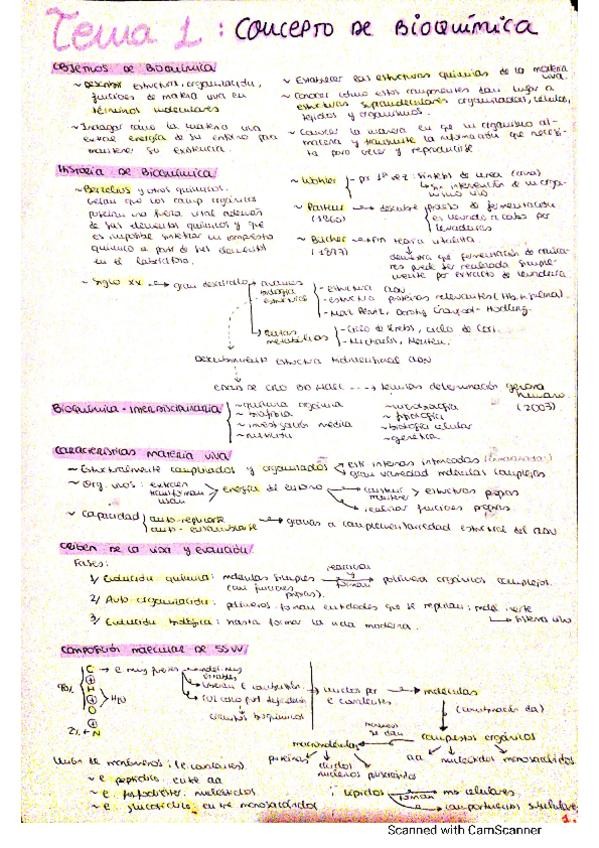 Tema 1: CONCEPTO DE BIOQUÍMICA
OBJETIVOS DE BIOQUÍMICA
~ Describir estructura, organización,
funciones de materia viva en
términos moleculares
~ Indagar cómo la materia viva
extrae energía de su entorno para
mantener su existencia.
~ Establecer las estructuras químicas de la materia
viva.
~ Conocer cómo estos componentes dan lugar a
estructuras supramoleculares organizadas, células,
tejidos y organismos.
~ Conocer la manera en que un organismo al-
macena y transmite la información que necesi-
ta para crecer y reproducirse
HISTORIA DE BIOQUÍMICA
~ Berzelius y otros químicos
creían que los comp orgánicos
poseían una fuerza vital además
de sus elementos químicos y que
es imposible sintetizar un compuesto
químico a partir de sus elementos
en el laboratorio.
~ Wöhler por 1ª vez: síntesis de urea
sin intervención de un orga-
nismo vivo
~ Pasteur → descubre proceso de fermentación
(1860) es llevado a cabo por
levaduras
~ Buchner → fin teoría vitalista
(1897)
demuestra que fermentación de
puede ser realizada simple-
mente por extracto de levadura
~ Siglo XX → gran desarrollo
avances
biología
estructural
- estructura ADN
- estructura proteínas relevantes
- Max Perutz, Dorothy Crowfoot-Hodgkin.
rutas
metabólicas
- Ciclo de Krebs, ciclo de Cori.
- Michaelis, Menten.
Descubrimiento estructura tridimensional ADN
determinación genoma
humano
(2003)
BIOQUÍMICA - INTERDISCIPLINARIA
~ química orgánica
~ biofísica
~ investigación médica
~ nutrición
~ microbiología
~ fisiología
~ biología celular
~ genética
CARACTERÍSTICAS MATERIA VIVA
~ Estructuralmente complicados y organizados
gran variedad moléculas complejas
~ Org. vivos: extraen
transforman
usan
energía del entorno
construir
mantener
estructuras propias
realizar funciones propias.
~ Capacidad
auto-replicarse
auto-ensamblarse
gracias a complementariedad estructural del ADN
ORIGEN DE LA VIDA Y EVOLUCIÓN
Fases:
1/ Evolución química: moléculas simples
reaccionan
forman
polímeros orgánicos complejos.
(con funciones
propias).
2/ Auto organización: polímeros forman entidades que se replican:
3/ Evolución biológica: hasta formar la vida moderna.
COMPOSICIÓN MOLECULAR DE SSVV
C
H
O
2% N
unidos por
e covalentes
moléculas
compuestos orgánicos
macromoléculas
proteínas
ácidos
nucleicos
aa
nucleótidos
monosacáridos
Unión de monómeros: (e covalentes).
~ e peptídico: entre aa
~ e fosfodiéster: nucleótidos
~ e glucosídico: entre monosacáridos
lípidos
forman
mb celulares
1.
Scanned with CamScanner